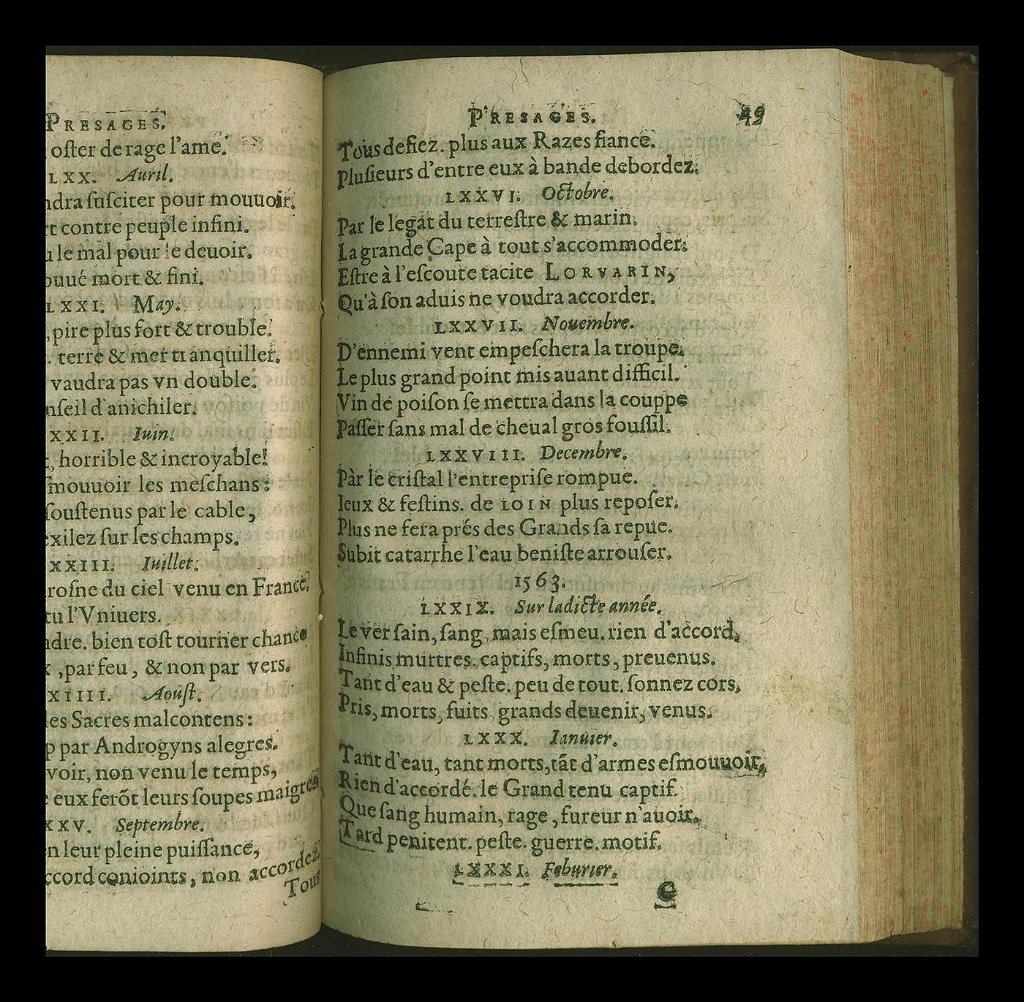 PRESAGES.
oſter de rage l'ame.
LXX. Auril.
ndra ſuſciter pour mouuoir.
rt contre peuple infini.
u le mal pour le deuoir.
ouué mort & fini.
LXXI. May.
, pire plus fort & trouble.
. terre & mer tranquiller.
vaudra pas vn double.
nſeil d'anichiler.
XXII. Iuin.
, horrible & incroyable!
ſmouuoir les meſchans:
ſouſtenus par le cable,
exilez ſur les champs.
XXIII. Iuillet.
roſne du ciel venu en France,
tu l'Vniuers.
ndre. bien toſt tourner chance
x, par feu, & non par vers.
XIIII. Aouſt.
les Sacres malcontens:
p par Androgyns alegres.
voir, non venu le temps,
e eux ferõt leurs ſoupes maigres
XXV. Septembre.
n leur pleine puiſſance,
ccord conioints, non accordez
Tous
PRESAGES. 49
Tous defiez. plus aux Razes fiance.
Pluſieurs d'entre eux à bande debordez.
LXXVI. Octobre.
Par le legat du terreſtre & marin.
La grande Cape à tout s'accommoder.
Eſtre à l'eſcoute tacite LORVARIN,
Qu'à ſon aduis ne voudra accorder.
LXXVII. Nouembre.
D'ennemi vent empeſchera la troupe.
Le plus grand point mis auant difficil.
Vin de poiſon ſe mettra dans la couppe
Paſſer ſans mal de cheual gros fouſſil.
LXXVIII. Decembre.
Par le criſtal l'entrepriſe rompue.
Ieux & feſtins. de LOIN plus repoſer.
Plus ne fera prés des Grands ſa repue.
Subit catarrhe l'eau beniſte arrouſer.
1563.
LXXIX. Sur ladicte année.
Le ver ſain, ſang, mais eſmeu. rien d'accord,
Infinis murtres. captifs, morts, preuenus.
Tant d'eau & peſte. peu de tout. ſonnez cors,
Pris, morts, fuits, grands deuenir, venus.
LXXX. Ianuier.
Tant d'eau, tant morts, tãt d'armes eſmouuoir,
Rien d'accordé. le Grand tenu captif.
Que ſang humain, rage, fureur n'auoir.
Tard penitent. peſte. guerre. motif.
LXXXI. Feburier.
G